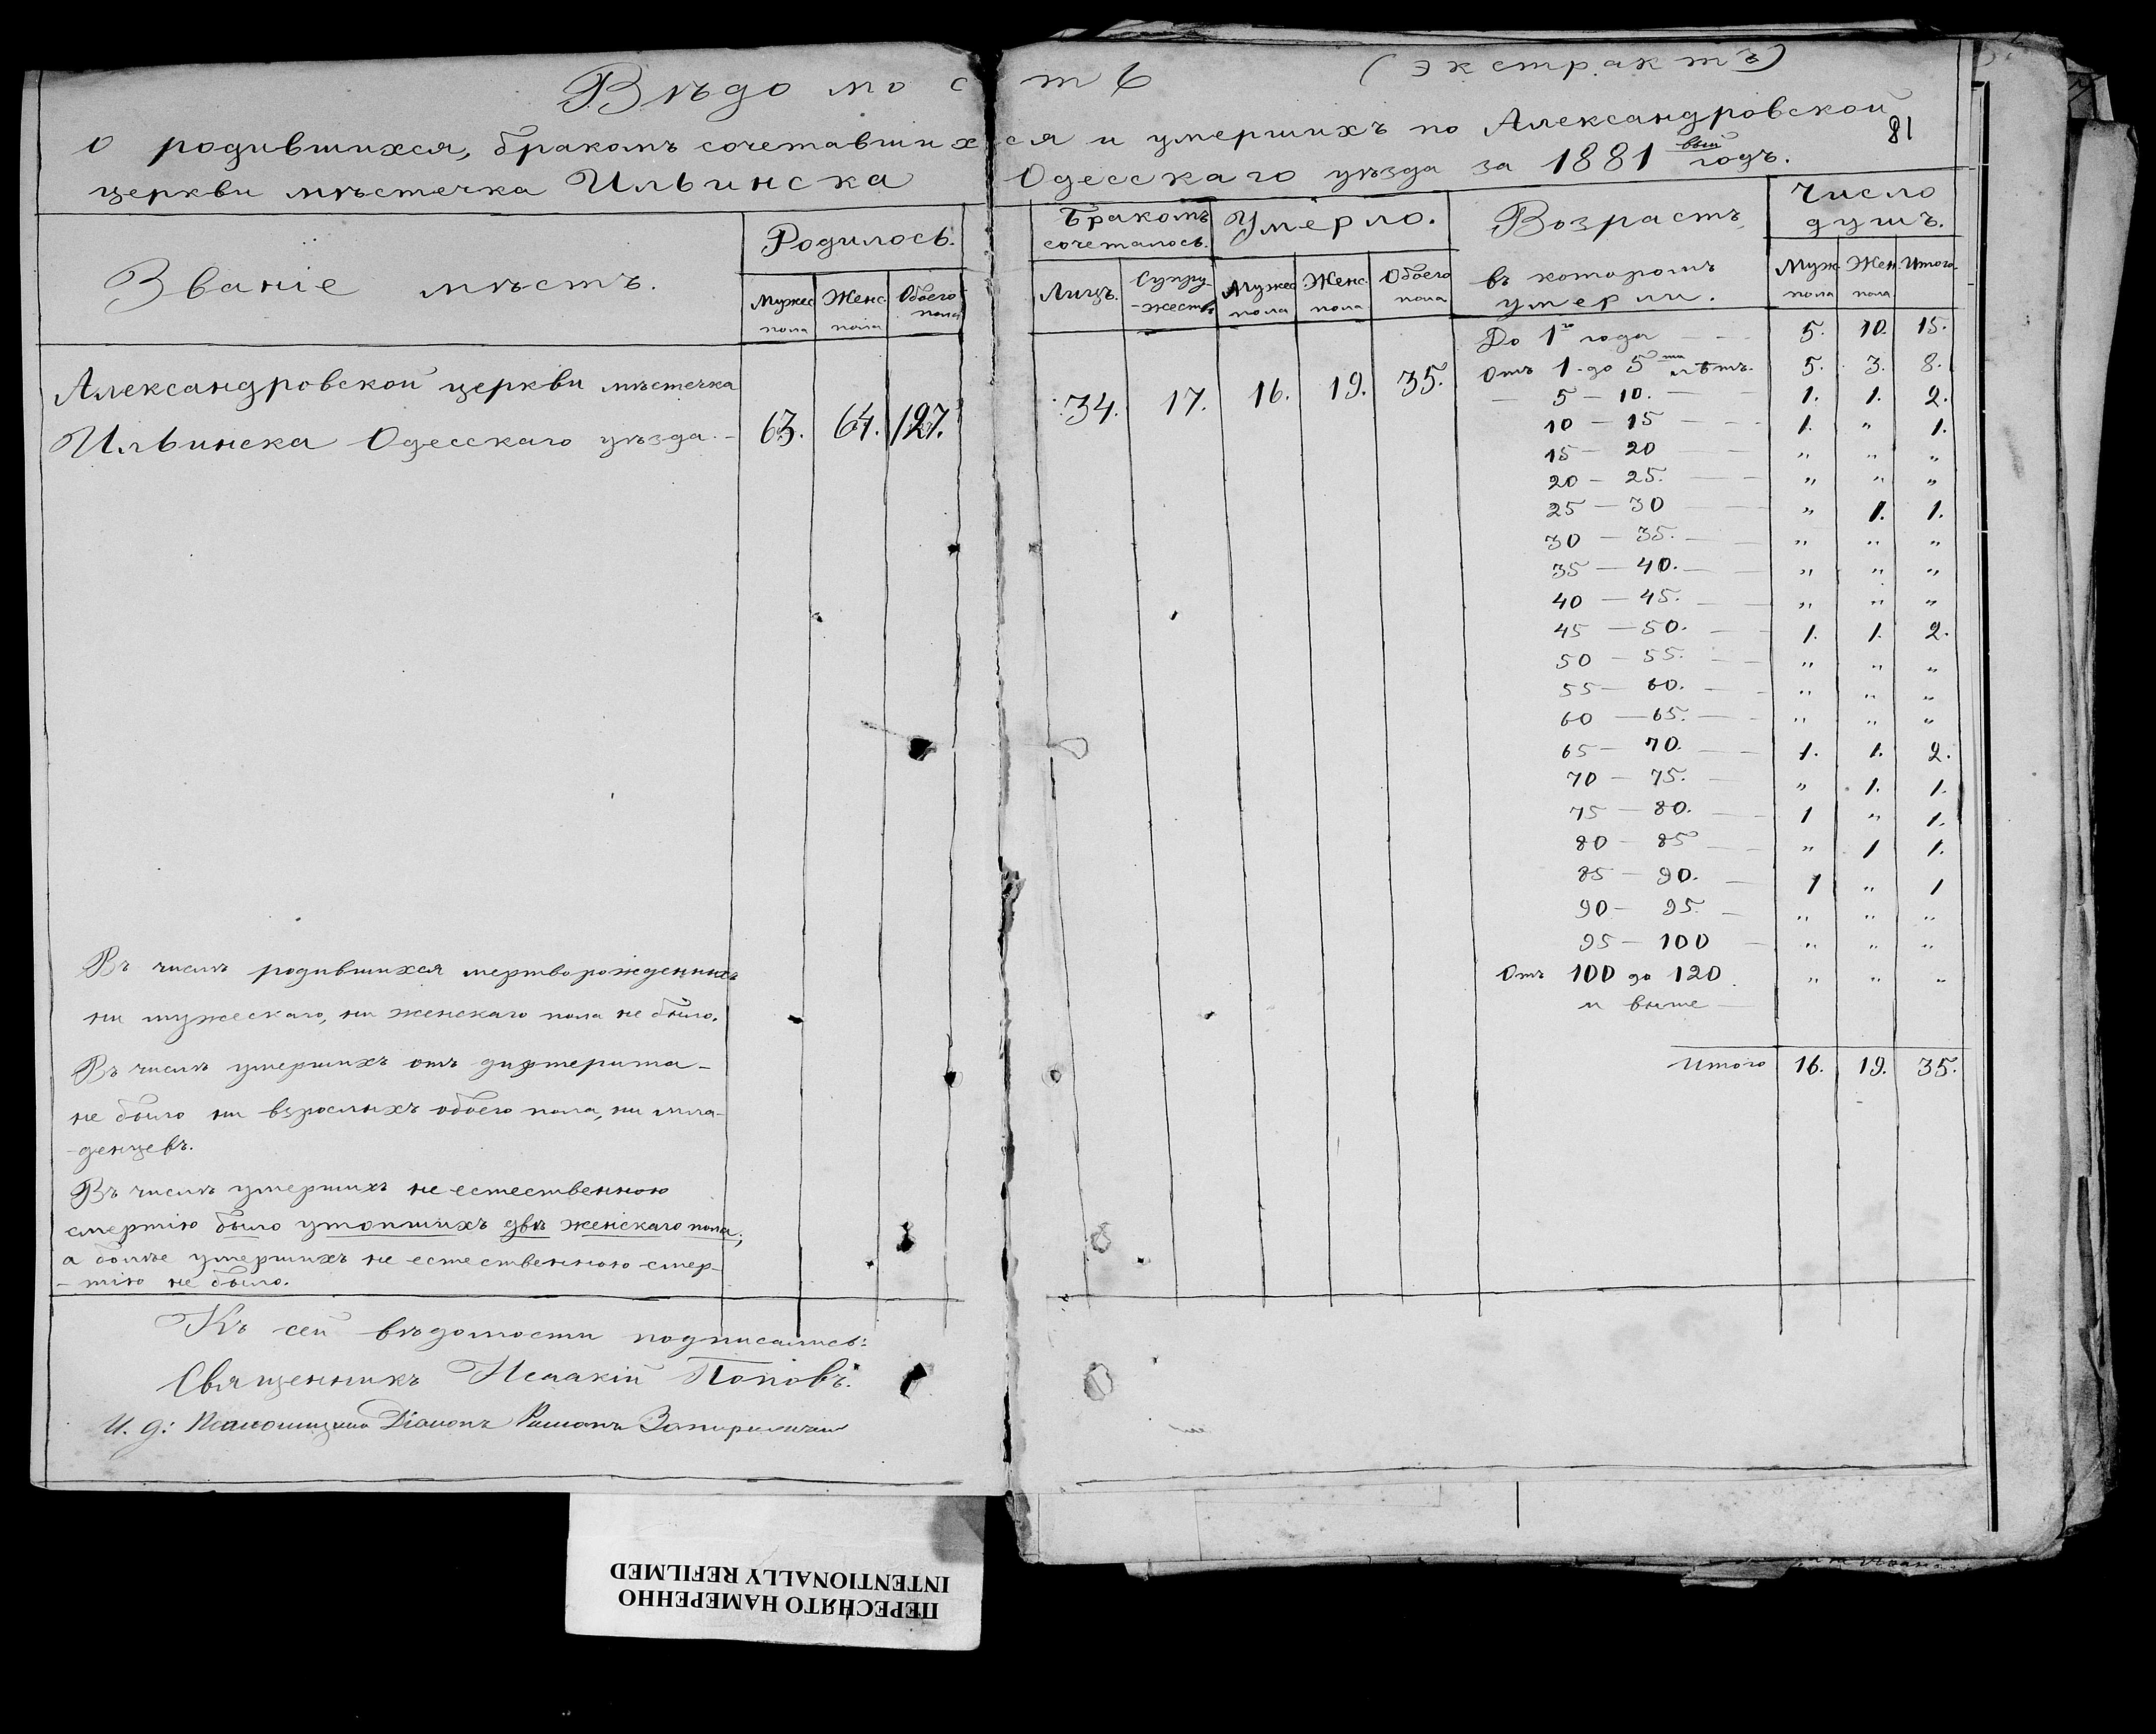 Вѣдомость (экстрактъ)
о родившихся, бракомъ сочетавшихся и умершихъ по Александровской
81
церкви мѣстечка Ильинска Одесскаго уѣзда за 1881 вый годъ.
Званіе мѣстъ.
Родилось.
Мужес. пола
Женс. пола
Обоего пола
Бракомъ сочеталось.
Лицъ.
Супру-
-жествъ
Умерло.
Мужес. пола
Женс. пола
Обоего пола
Возрастъ,
въ которомъ
умерли.
Число
душъ.
Муж. пола
Жен. пола
Итого
Александровской церкви мѣстечка
Ильинска Одесскаго уѣзда. - 63. 64. 127.
34. 17. 16. 19. 35.
До 1го года — 5. 10. 15.
Отъ 1. до 5ти лѣтъ. 5. 3. 8.
— 5 — 10. — 1. 1. 2.
10 — 15 — 1. „ 1.
15 — 20 — „ „ „
20 — 25. — „ „ „
25 — 30 — „ 1. 1.
30 — 35. — „ „ „
35 — 40. — „ „ „
40 — 45. — „ „ „
45 — 50. — 1. 1. 2.
50 — 55. — „ „ „
55 — 60. — „ „ „
60 — 65. — „ „ „
65 — 70. — 1. 1. 2.
70 — 75. — „ 1. 1.
75 — 80. — 1 „ 1.
80 — 85 — „ 1 1.
85 — 90. — 1 „ 1
90 — 95. — „ „ „
95 — 100 — „ „ „
Отъ 100 до 120 „ „ „
и выше —
Итого 16. 19. 35.
Въ числѣ родившихся мертворожденныхъ
ни мужескаго, ни женскаго пола не было.
Въ числѣ умершихъ отъ дифтерита -
не было ни взрослыхъ обоего пола, ни мла-
-денцевъ.
Въ числѣ умершихъ не естественною
смертію было утопшихъ двѣ женскаго пола;
а болѣе умершихъ не естественною смер-
-тію не было.
Къ сей вѣдомости подписались:
Священникъ Исаакій Поповъ.
И. д: Псаломщика Діаконъ Романъ
ПЕРЕСНЯТО НАМЕРЕННО
INTENTIONALLY REFILMED